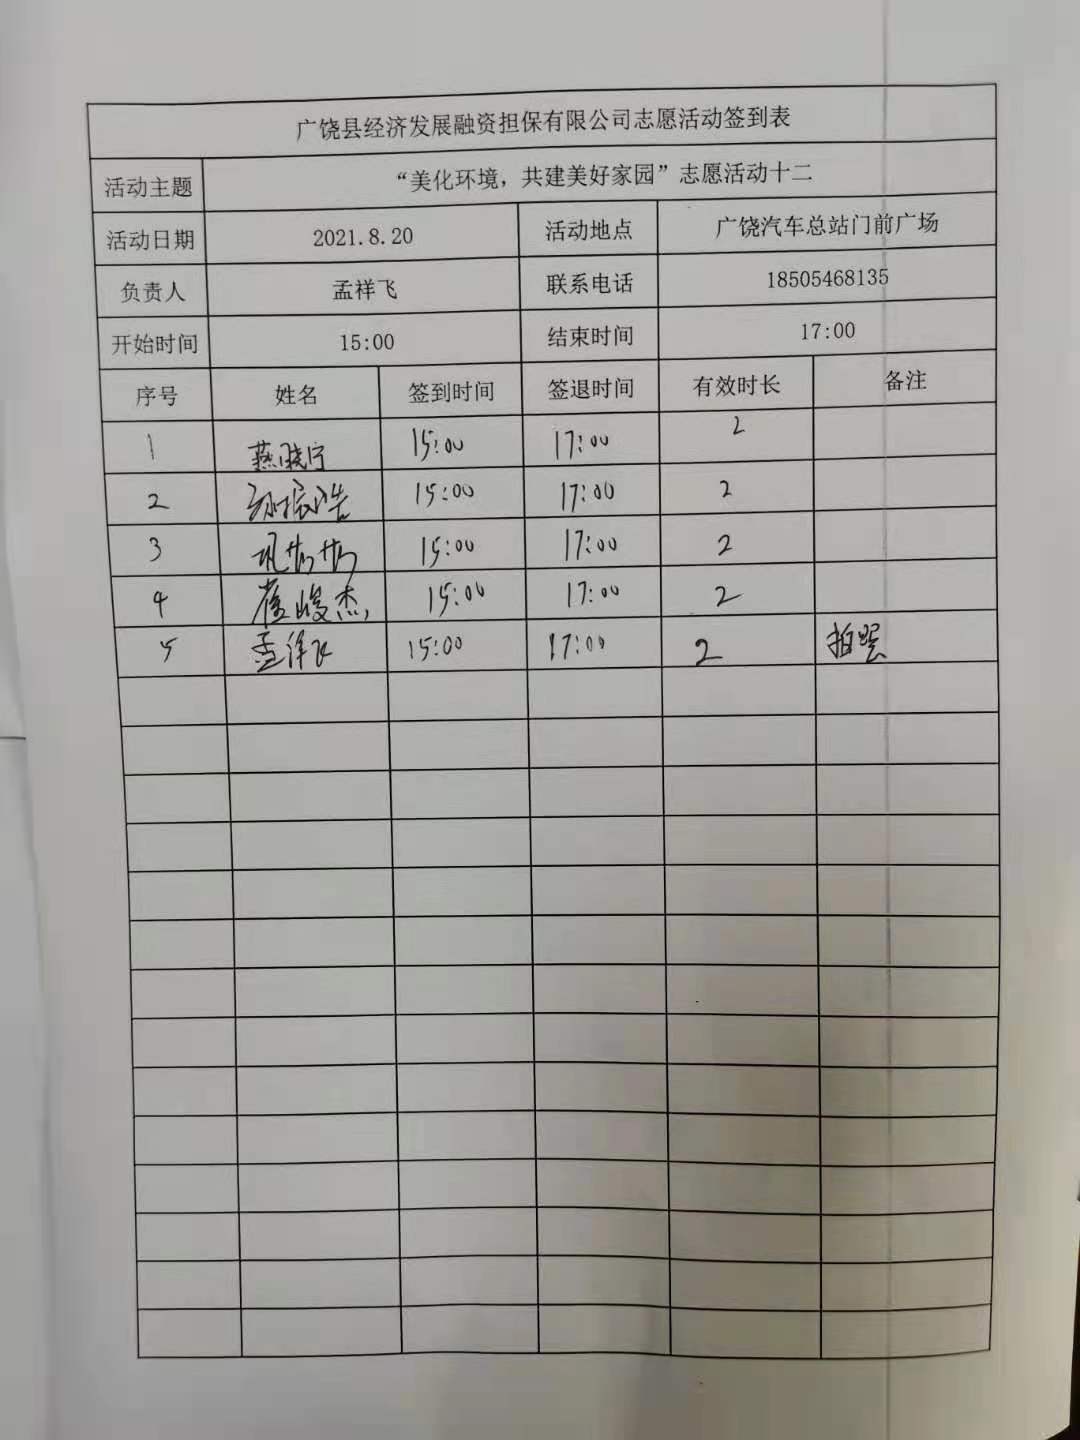 广饶县经济发展融资担保有限公司志愿活动签到表
活动主题 “美化环境，共建美好家园”志愿活动十二
活动日期 2021.8.20 活动地点 广饶汽车总站门前广场
负责人 孟祥飞 联系电话 18505468135
开始时间 15:00 结束时间 17:00
序号 姓名 签到时间 签退时间 有效时长 备注
1 燕晓宁 15:00 17:00 2
2 15:00 17:00 2
3 15:00 17:00 2
4 崔峻杰 15:00 17:00 2
5 孟祥飞 15:00 17:00 2